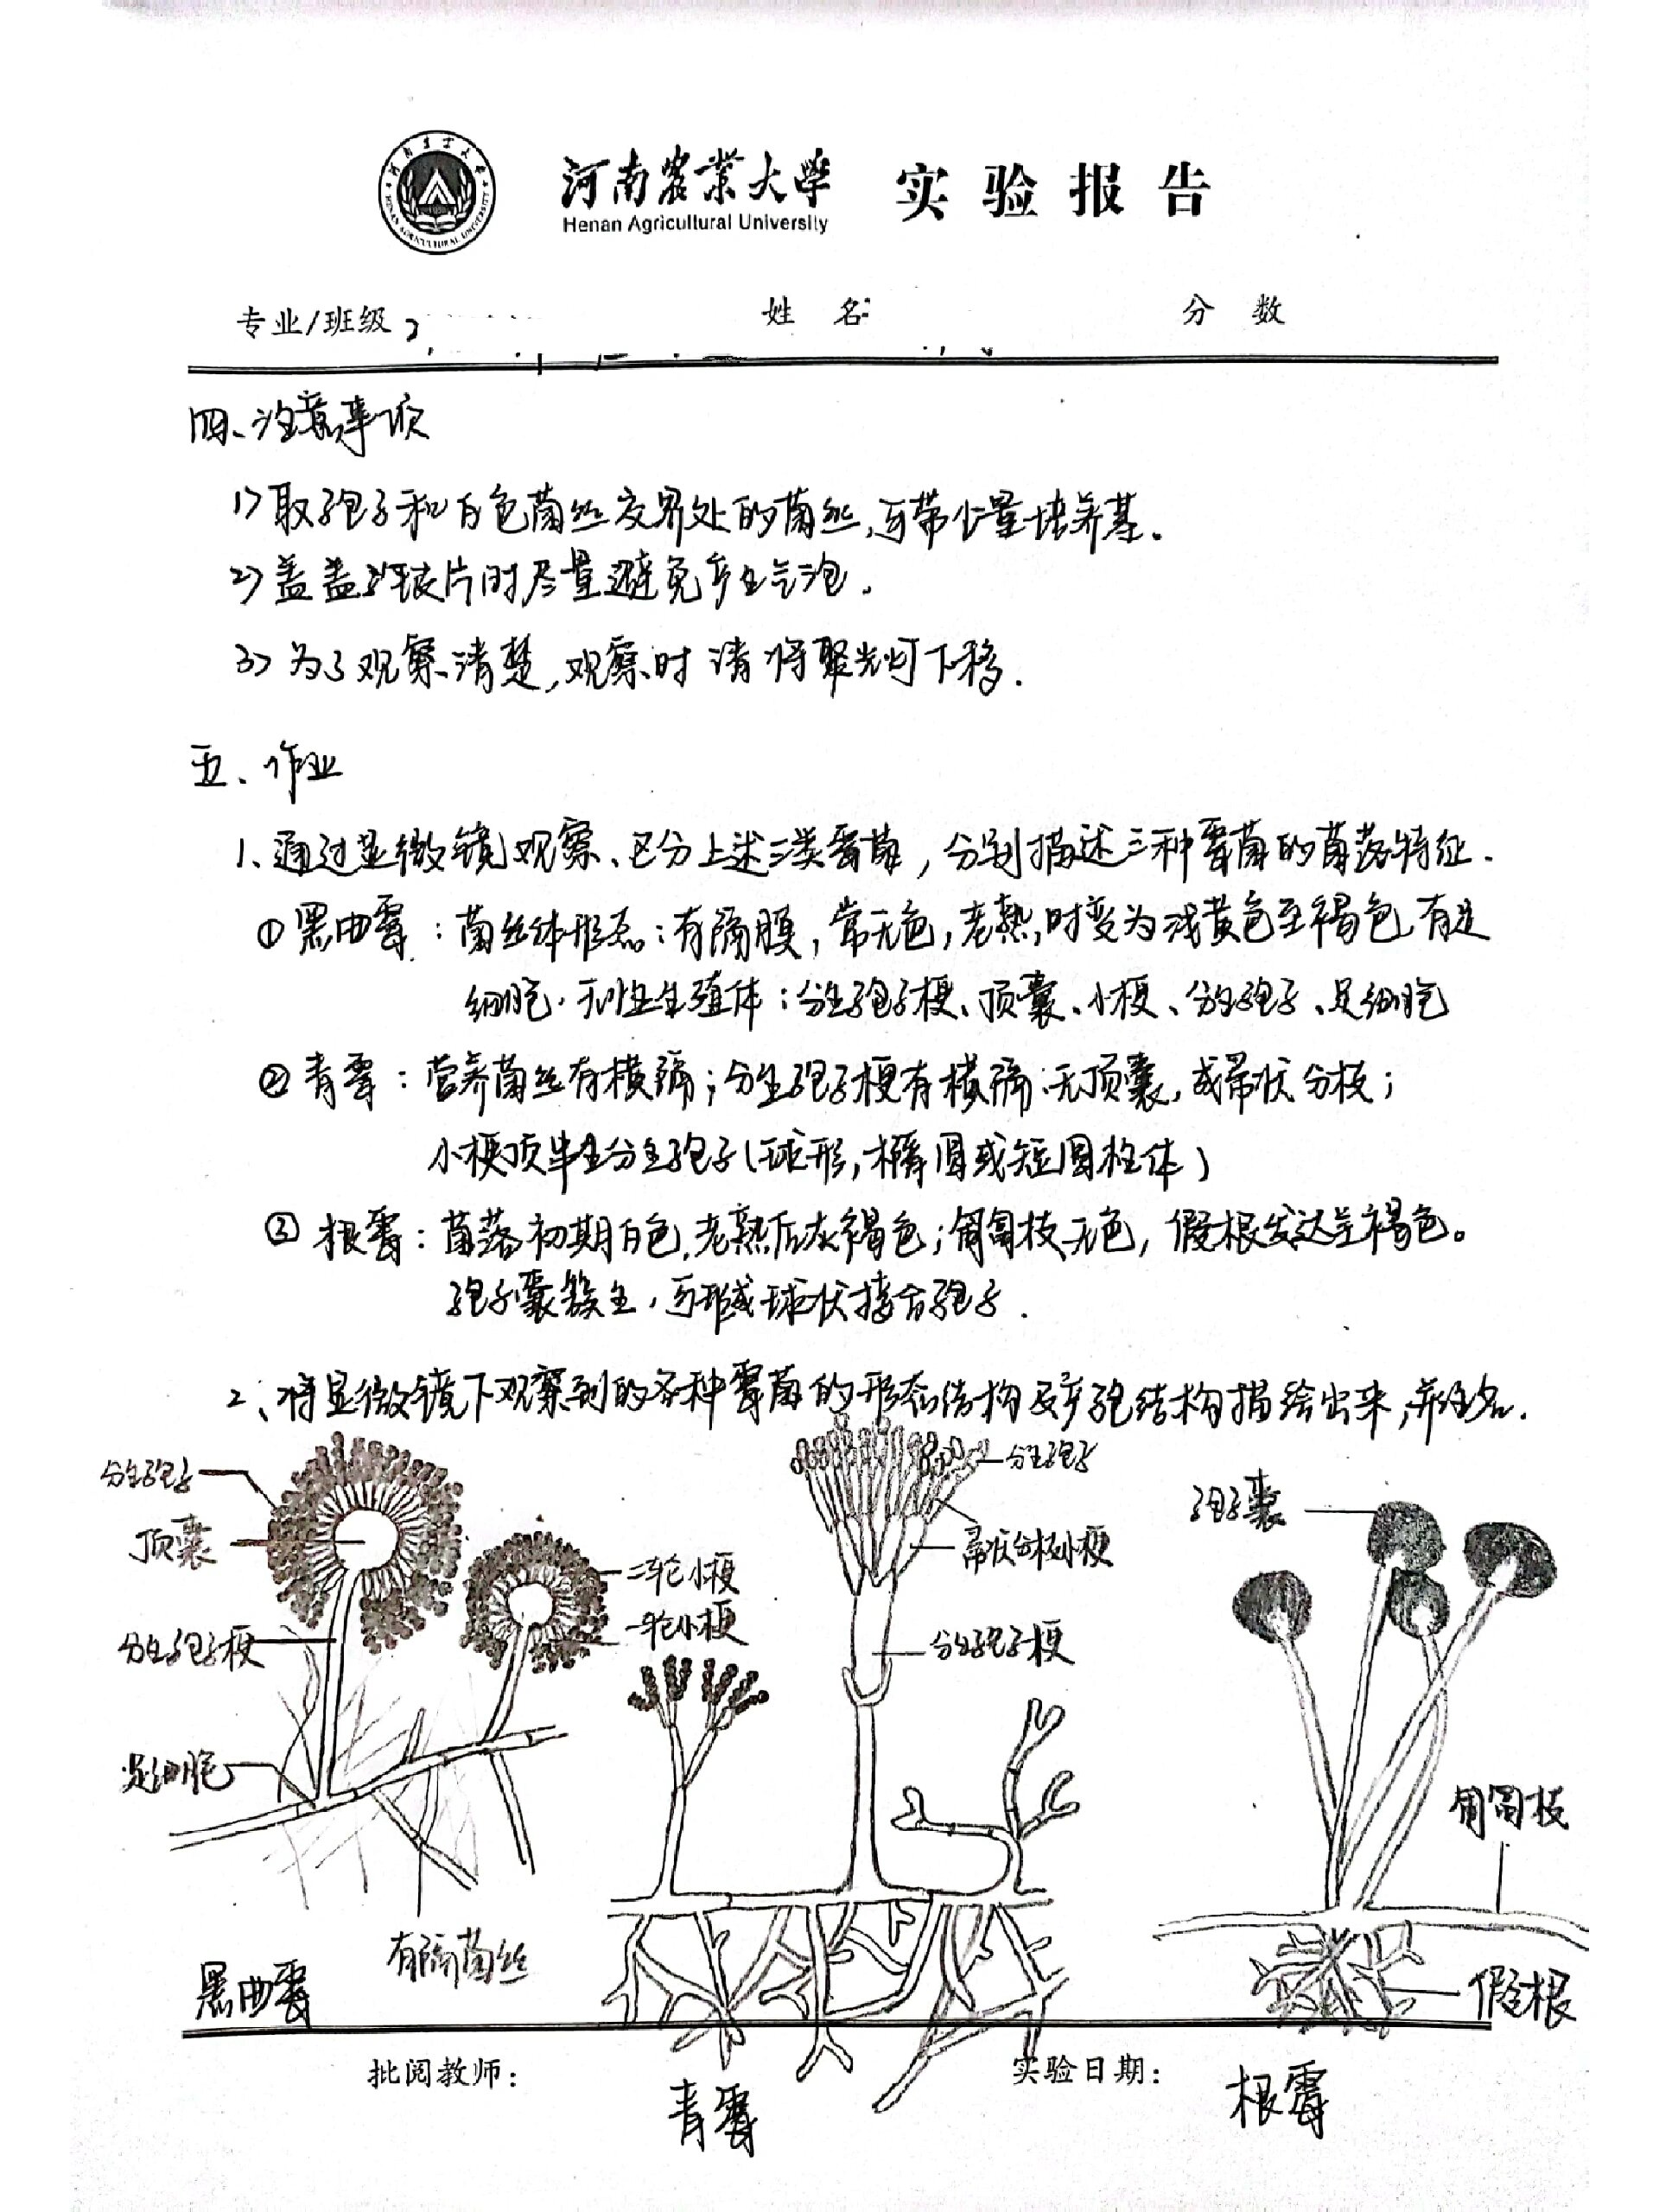 河南农业大学 实验报告
Henan Agricultural University
专业/班级 姓 名: 分 数
四、注意事项
1)取孢子和白色菌丝交界处的菌丝,可带少量培养基。
2)盖盖玻片时尽量避免产生气泡。
3)为了观察清楚,观察时请将聚光灯下移.
五、作业
1、通过显微镜观察、区分上述三类霉菌,分别描述三种霉菌的菌落特征.
①黑曲霉:菌丝体形态:有隔膜,常无色,老熟时变为浅黄色至褐色,有足
细胞.无性生殖体:分生孢子梗、顶囊、小梗、分生孢子、足细胞
②青霉:营养菌丝有横隔;分生孢子梗有横隔.无顶囊,成帚状分枝;
小梗顶串生分生孢子(球形,椭圆或短圆柱体)
③根霉:菌落初期白色,老熟后灰褐色;匍匐枝无色,假根发达呈褐色。
孢子囊簇生,可形成球状接合孢子.
2、将显微镜下观察到的各种霉菌的形态结构及产孢结构描绘出来,并注名.
分生孢子
顶囊
分生孢子梗
足细胞
二轮小梗
一轮小梗
有隔菌丝
黑曲霉
分生孢子
帚状分枝小梗
分生孢子梗
青霉
孢子囊
匍匐枝
假根
根霉
批阅教师: 实验日期: